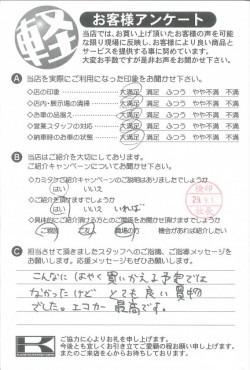 軽
お客様アンケート
当店では、お買い上げ頂いたお客様の声を可能
な限り現場に反映し、お客様により良い商品と
サービスを提供する事に努めています。
大変お手数ですが是非お声をお聞かせ下さい。
A 当店を実際にご利用になった印象をお聞かせ下さい。
◇店の印象 大満足 満足 ふつう やや不満 不満
◇店内・展示場の清掃 大満足 満足 ふつう やや不満 不満
◇お車の品揃え 大満足 満足 ふつう やや不満 不満
◇営業スタッフの対応 大満足 満足 ふつう やや不満 不満
◇納車時のお車の状態 大満足 満足 ふつう やや不満 不満
B 当店はご紹介を大切にしております。
ご紹介キャンペーンについてお聞かせ下さい。
◇カミタケご紹介キャンペーンのご説明はありましたでしょうか
はい いいえ
◇ご紹介を頂けますでしょうか
はい いいえ いれば
◇具体的にご紹介頂ける方との ご関係をお聞かせ頂けますでしょうか
ご親戚 ご友人 職場の方 機会があれば紹介したい
C 担当させて頂きましたスタッフへのご指摘、ご指導メッセージを
お願いします。応援メッセージもぜひお願い致します。
こんなに はやく 買いかえる予定では
なかったけど とても良い買物
でした。エコカー 最高です。
K
ご協力に心よりお礼を申し上げます。
今後とも宜しくお引き立てご愛顧の程お願い申し上げます。
またのご来店を心からお待ちしております。